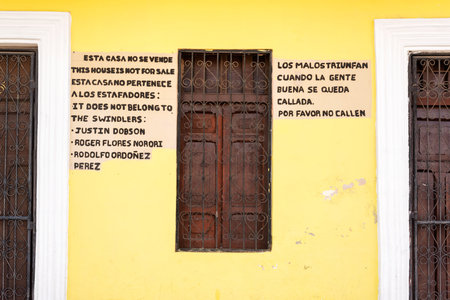 ESTA CASA NO SE VENDE
THIS HOUSE IS NOT FOR SALE
ESTA CASA NO PERTENECE
A LOS ESTAFADORES:
IT DOES NOT BELONG TO
THE SWINDLERS:
• JUSTIN DOBSON
• ROGER FLORES NORORI
• RODOLFO ORDOÑEZ
PEREZ
LOS MALOS TRIUNFAN
CUANDO LA GENTE
BUENA SE QUEDA
CALLADA.
POR FAVOR NO CALLEN